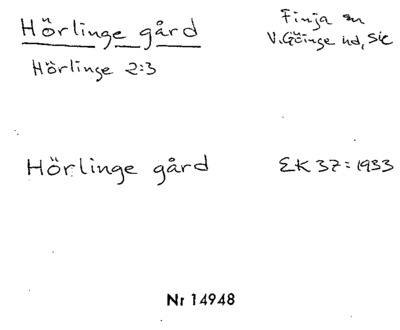 Hörlinge gård
Finja sn
V. Göinge hd, Sk
Hörlinge 2:3
Hörlinge gård
EK 37:1933
Nr 14948